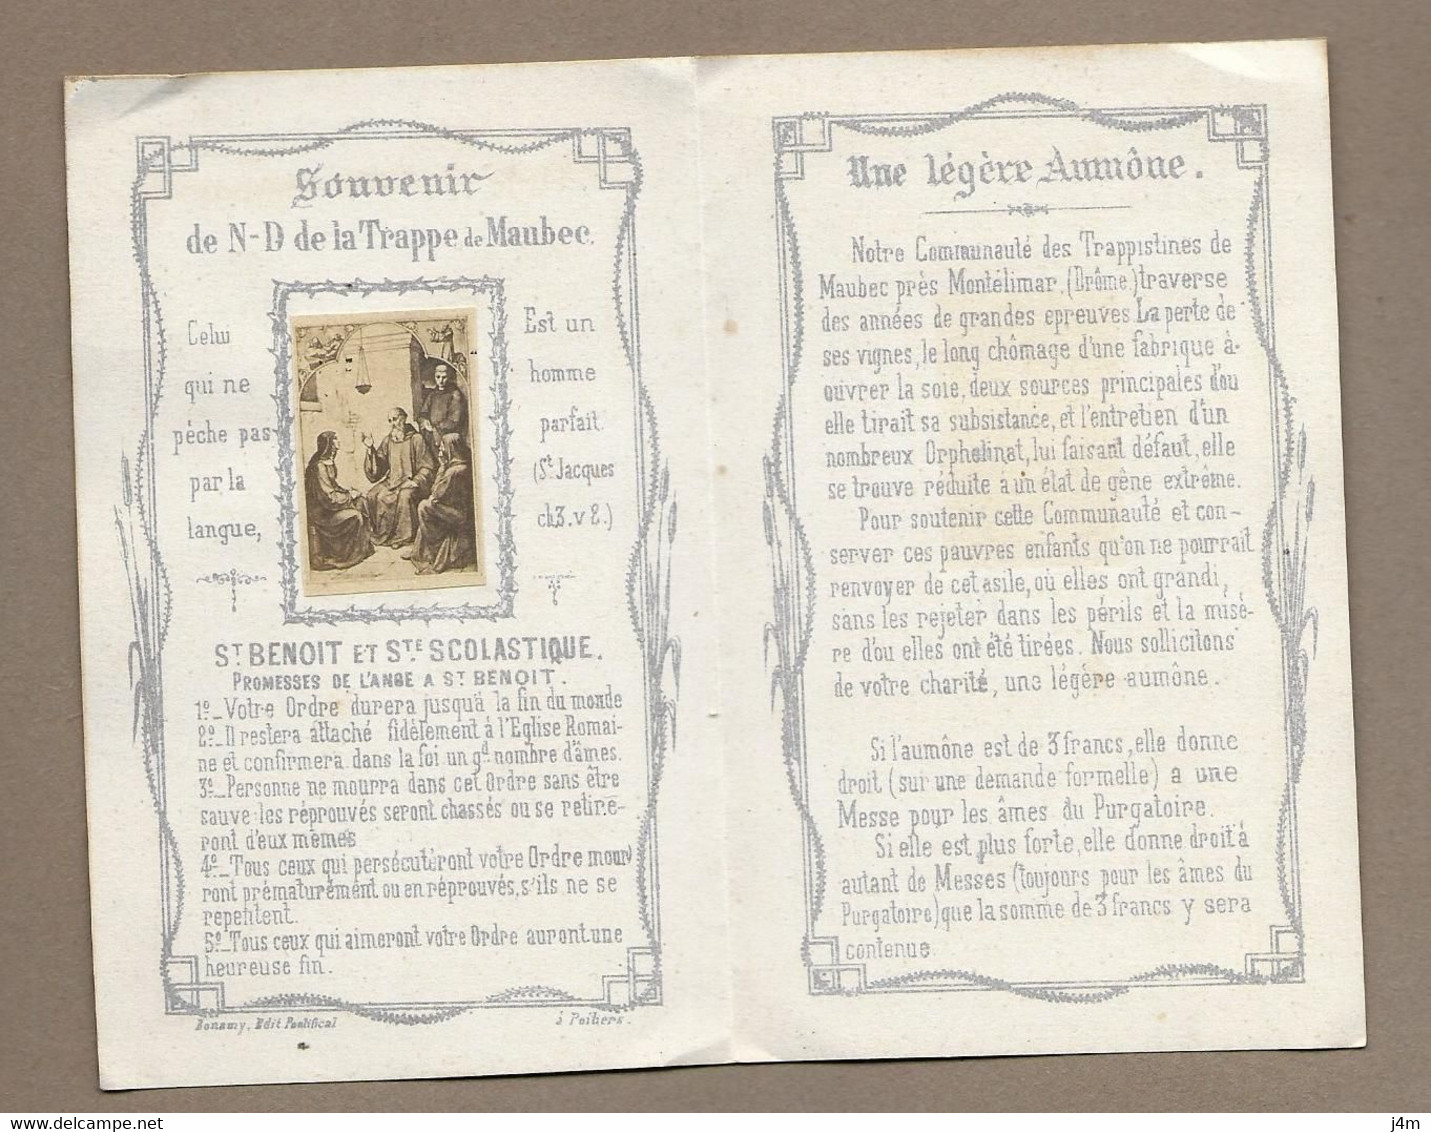 Souvenir
de N-D de la Trappe de Maubec.
Celui
qui ne
pèche pas
par la
langue,
Est un
homme
parfait.
(St. Jacques
ch3. v 2.)
ST BENOIT ET STE SCOLASTIQUE.
PROMESSES DE L'ANGE A ST BENOIT.
1º_Votre Ordre durera jusquà la fin du monde
2º_Il restera attaché fidèlement à l'Eglise Romai-
ne et confirmera dans la foi un gd nombre d'âmes.
3º_Personne ne mourra dans cet Ordre sans être
sauve les réprouvés seront chassés ou se retire-
ront d'eux mêmes
4º_Tous ceux qui persécutéront votre Ordre mour)
ront prématurément ou en réprouvés, s'ils ne se
repentent.
5º_Tous ceux qui aimeront votre Ordre auront une
heureuse fin.
Bonamy, Edit Pontifical à Poitiers.
Une légère Aumône.
Notre Communauté des Trappistines de
Maubec près Montélimar, (Drôme,) traverse
des années de grandes epreuves La perte de
ses vignes, le long chômage d'une fabrique à-
ouvrer la soie, deux sources principales d'ou
elle tirait sa subsistance, et l'entretien d'un
nombreux Orphelinat, lui faisant défaut, elle
se trouve réduite a un état de gêne extrême.
Pour soutenir cette Communauté et con-
server ces pauvres enfants qu'on ne pourrait
renvoyer de cet asile, où elles ont grandi,
sans les rejeter dans les périls et la misé-
re d'ou elles ont été tirées. Nous sollicitons
de votre charité, une légère aumône.
Si l'aumône est de 3 francs, elle donne
droit (sur une demande formelle) a une
Messe pour les âmes du Purgatoire.
Si elle est plus forte, elle donne droit à
autant de Messes (toujours pour les âmes du
Purgatoire) que la somme de 3 francs y sera
contenue.
www.delcampe.net
j4m